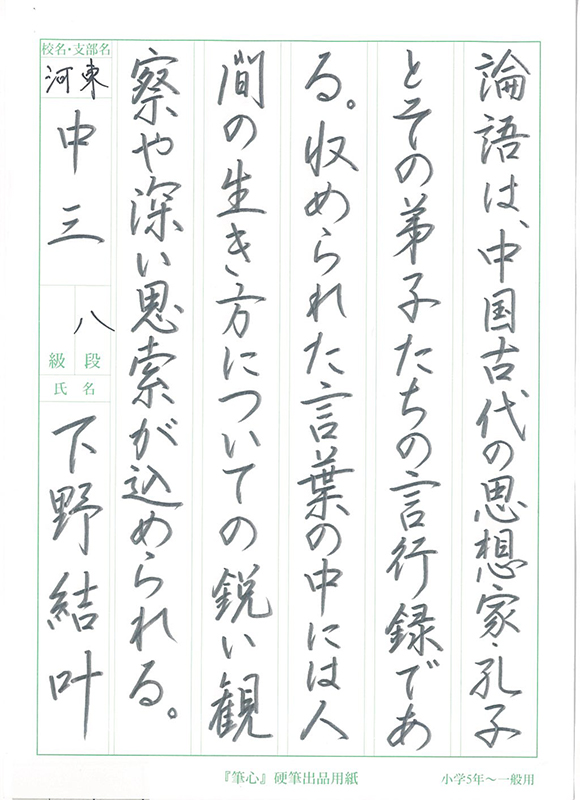 論語は、中国古代の思想家・孔子
とその弟子たちの言行録であ
る。収められた言葉の中には人
間の生き方についての鋭い観
察や深い思索が込められる。
校名・支部名
河東
中三
八
級 段
氏名
下野結叶
『筆心』硬筆出品用紙
小学5年〜一般用